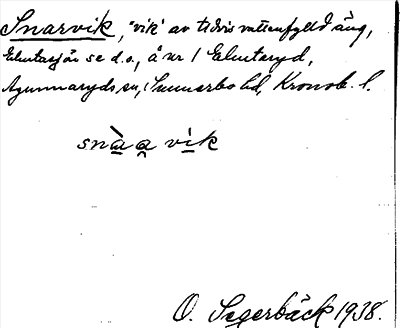 Snarvik, "vik" av tidvis vattenfylld äng,
Elmtasjön se d.o., å nr 1 Elmtaryd,
Agunnaryds sn, Sunnerbo hd, Kronob. l.
snàa vik
O. Segerbäck 1938.